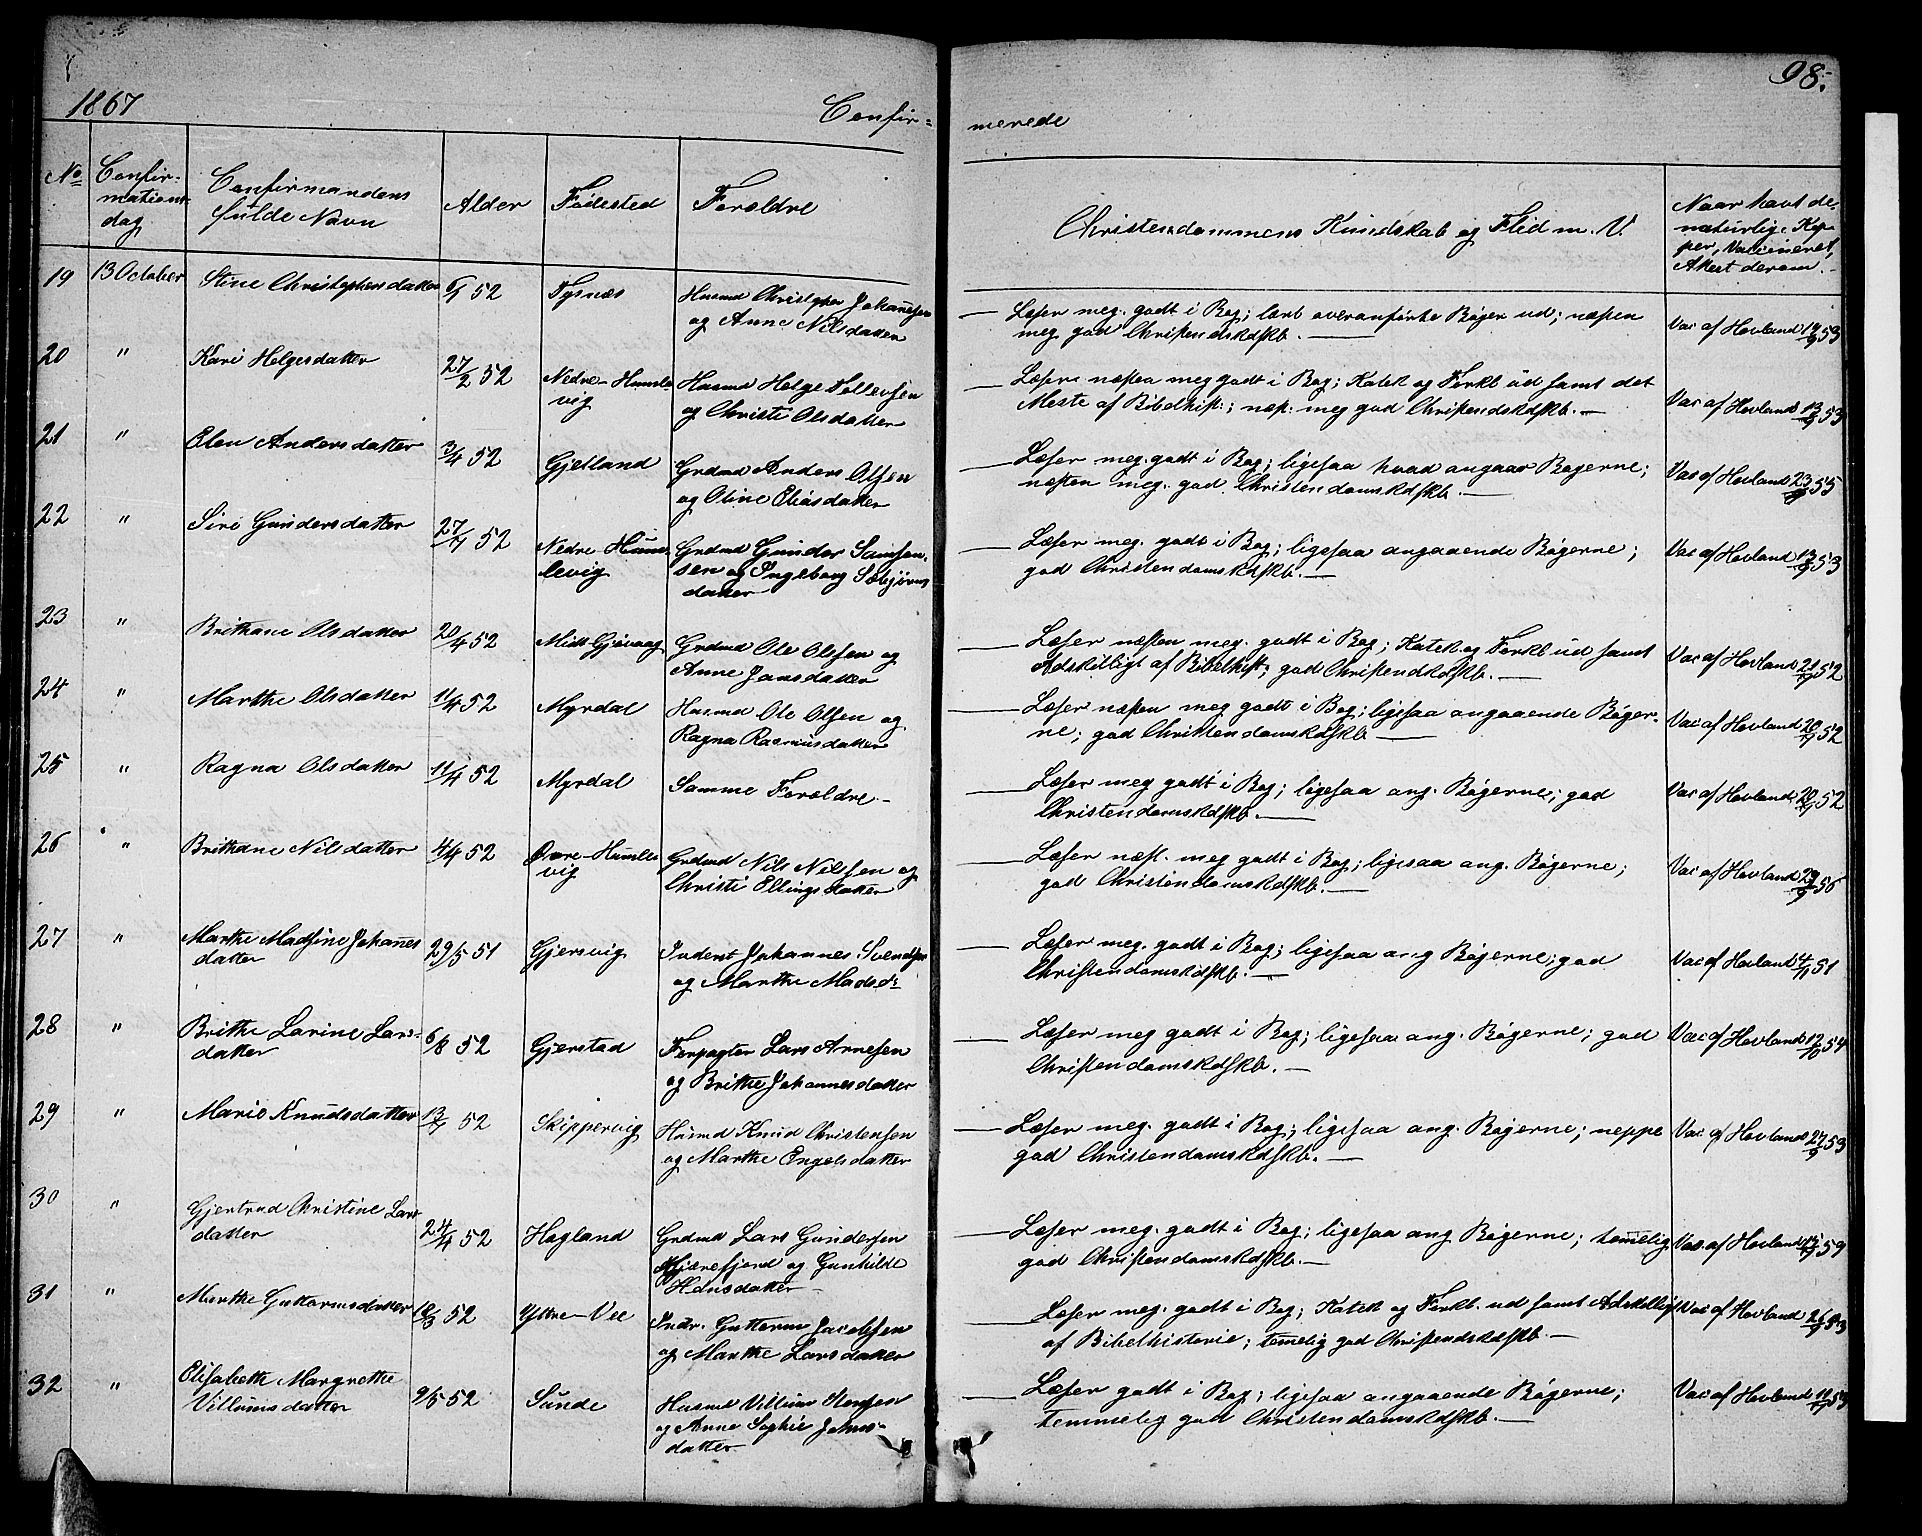 98.
1867
Confir=
merede
No
Confir-
mations
dag
Confirmandens
fulde Navn
Alder
Fødested
Forældre
Christendommens Kundskab og Flid m. V.
Naar havt de
naturlige Kop-
per, Vaccineret,
Attest derom.
19 13 October Stine Christophersdatter 6/1 52 Tysnæs Husmd Christopher Johannesen
og Anne Nilsdatter
Læser meg. godt i Bog; lært overanførte Bøger ud; næsten
meg god Christendskdskb.
Vac af Hovland 19/9 53
20 " Kari Helgesdatter 27/2 52 Nedre-Humle
vig
Husmd Helge Tollevsen
og Christi Olsdatter
Læser næsten meg godt i Bog; Katek og Forkl ud samt det
Meste af Bibelhist.; næst. meg god Christendskdskb.
Vac af Hovland 13/9 53
21 " Elen Andersdatter 3/4 52 Gjelland Grdmd Anders Olsen
og Oline Eliasdatter
Læser meg. godt i Bog; ligesaa hvad angaar Bøgerne;
næsten meg. god Christendomskdskb.
Vac af Hovland 23/9 55
22 " Siri Gundersdatter 27/7 52 Nedre-Hum
levig
Grdmd Gunder Samsen-
sen og Ingeborg Sebjørns
datter
Læser meg. godt i Bog; ligesaa angaaende Bøgerne;
god Christendomskdskb.
Vac af Hovland 13/9 53
23 " Brithane Olsdatter 20/4 52 Midt-Gjøvaag Grdmd Ole Olsen og
Anne Jansdatter
Læser næsten meg. godt i Bog; Katek og Forkl ud samt
Adskilligt af Bibelhist; god Christendskdskb.
Vac af Hovland 21/9 52
24 " Marthe Olsdatter 11/4 52 Myrdal Husmd Ole Olsen og
Ragna Rasmusdatter
Læser næsten meg godt i Bog; ligesaa angaaende Bøger-
ne; god Christendomskdskb
Vac af Hovland 20/9 52
25 " Ragna Olsdatter 11/4 52 Myrdal Samme Forældre
Læser meg godt i Bog; ligesaa ang. Bøgerne; god
Christendomskdskb.
Vac af Hovland 20/9 52
26 " Brithane Nilsdatter 4/4 52 Øvre-Humle
vig
Grdmd Nils Nilsen og
Christi Ellingsdatter
Læser næst. meg godt i Bog; ligesaa ang. Bøgerne;
god Christendomskdskb.
Vac af Hovland 29/9 56
27 " Marthe Madsine Johannes
datter
29/5 51 Gjersvig Inderst Johannes Svendsen
og Marthe Madsd:
Læser meg. godt i Bog; ligesaa ang Bøgerne; god
Christendomskdskb.
Vac af Hovland 4/9 51
28 " Brithe Larine Lars-
datter
6/8 52 Gjerstad Forpagter Lars Arnesen
og Brithe Johannesdatter
Læser meg godt i Bog; ligesaa ang. Bøgerne; god
Christendomskdskb.
Vac af Hovland 12/10 54
29 " Marie Knudsdatter 13/7 52 Skippervig Husmd Knud Christensen
og Marthe Engelsdatter
Læser meg. godt i Bog; ligesaa ang. Bøgerne; neppe
god Christendomskdskb.
Vac. af Hovland 27/9 53
30 " Gjertrud Christine Lars
datter
24/4 52 Hagland Grdmd Lars Gundersen
Kjærefjord og Gunhilde
Hansdatter
Læser meg. godt i Bog; ligesaa ang Bøgerne; temelig
god Christendomskdskb.
Vac. af Hovland 59
31 " Marthe Guttormsdatter 18/3 52 Yttre-Vee Indr. Guttorm Jacobsen
og Marthe Larsdatter
Læser meg. godt i Bog; Katek og Forkl. ud samt Adskilligt
af Bibelhistorie; temelig god Christendskdskb.
Vac af Hovland 26/9 53
32 " Elisabeth Margrethe
Villumsdatter
9/5 52 Sunde Husmd Villum Stensen
og Anne Sophie Johns-
datter
Læser godt i Bog; ligesaa angaaende Bøgerne;
temmelig god Christendomskdskb.
Vac af Hovland 53